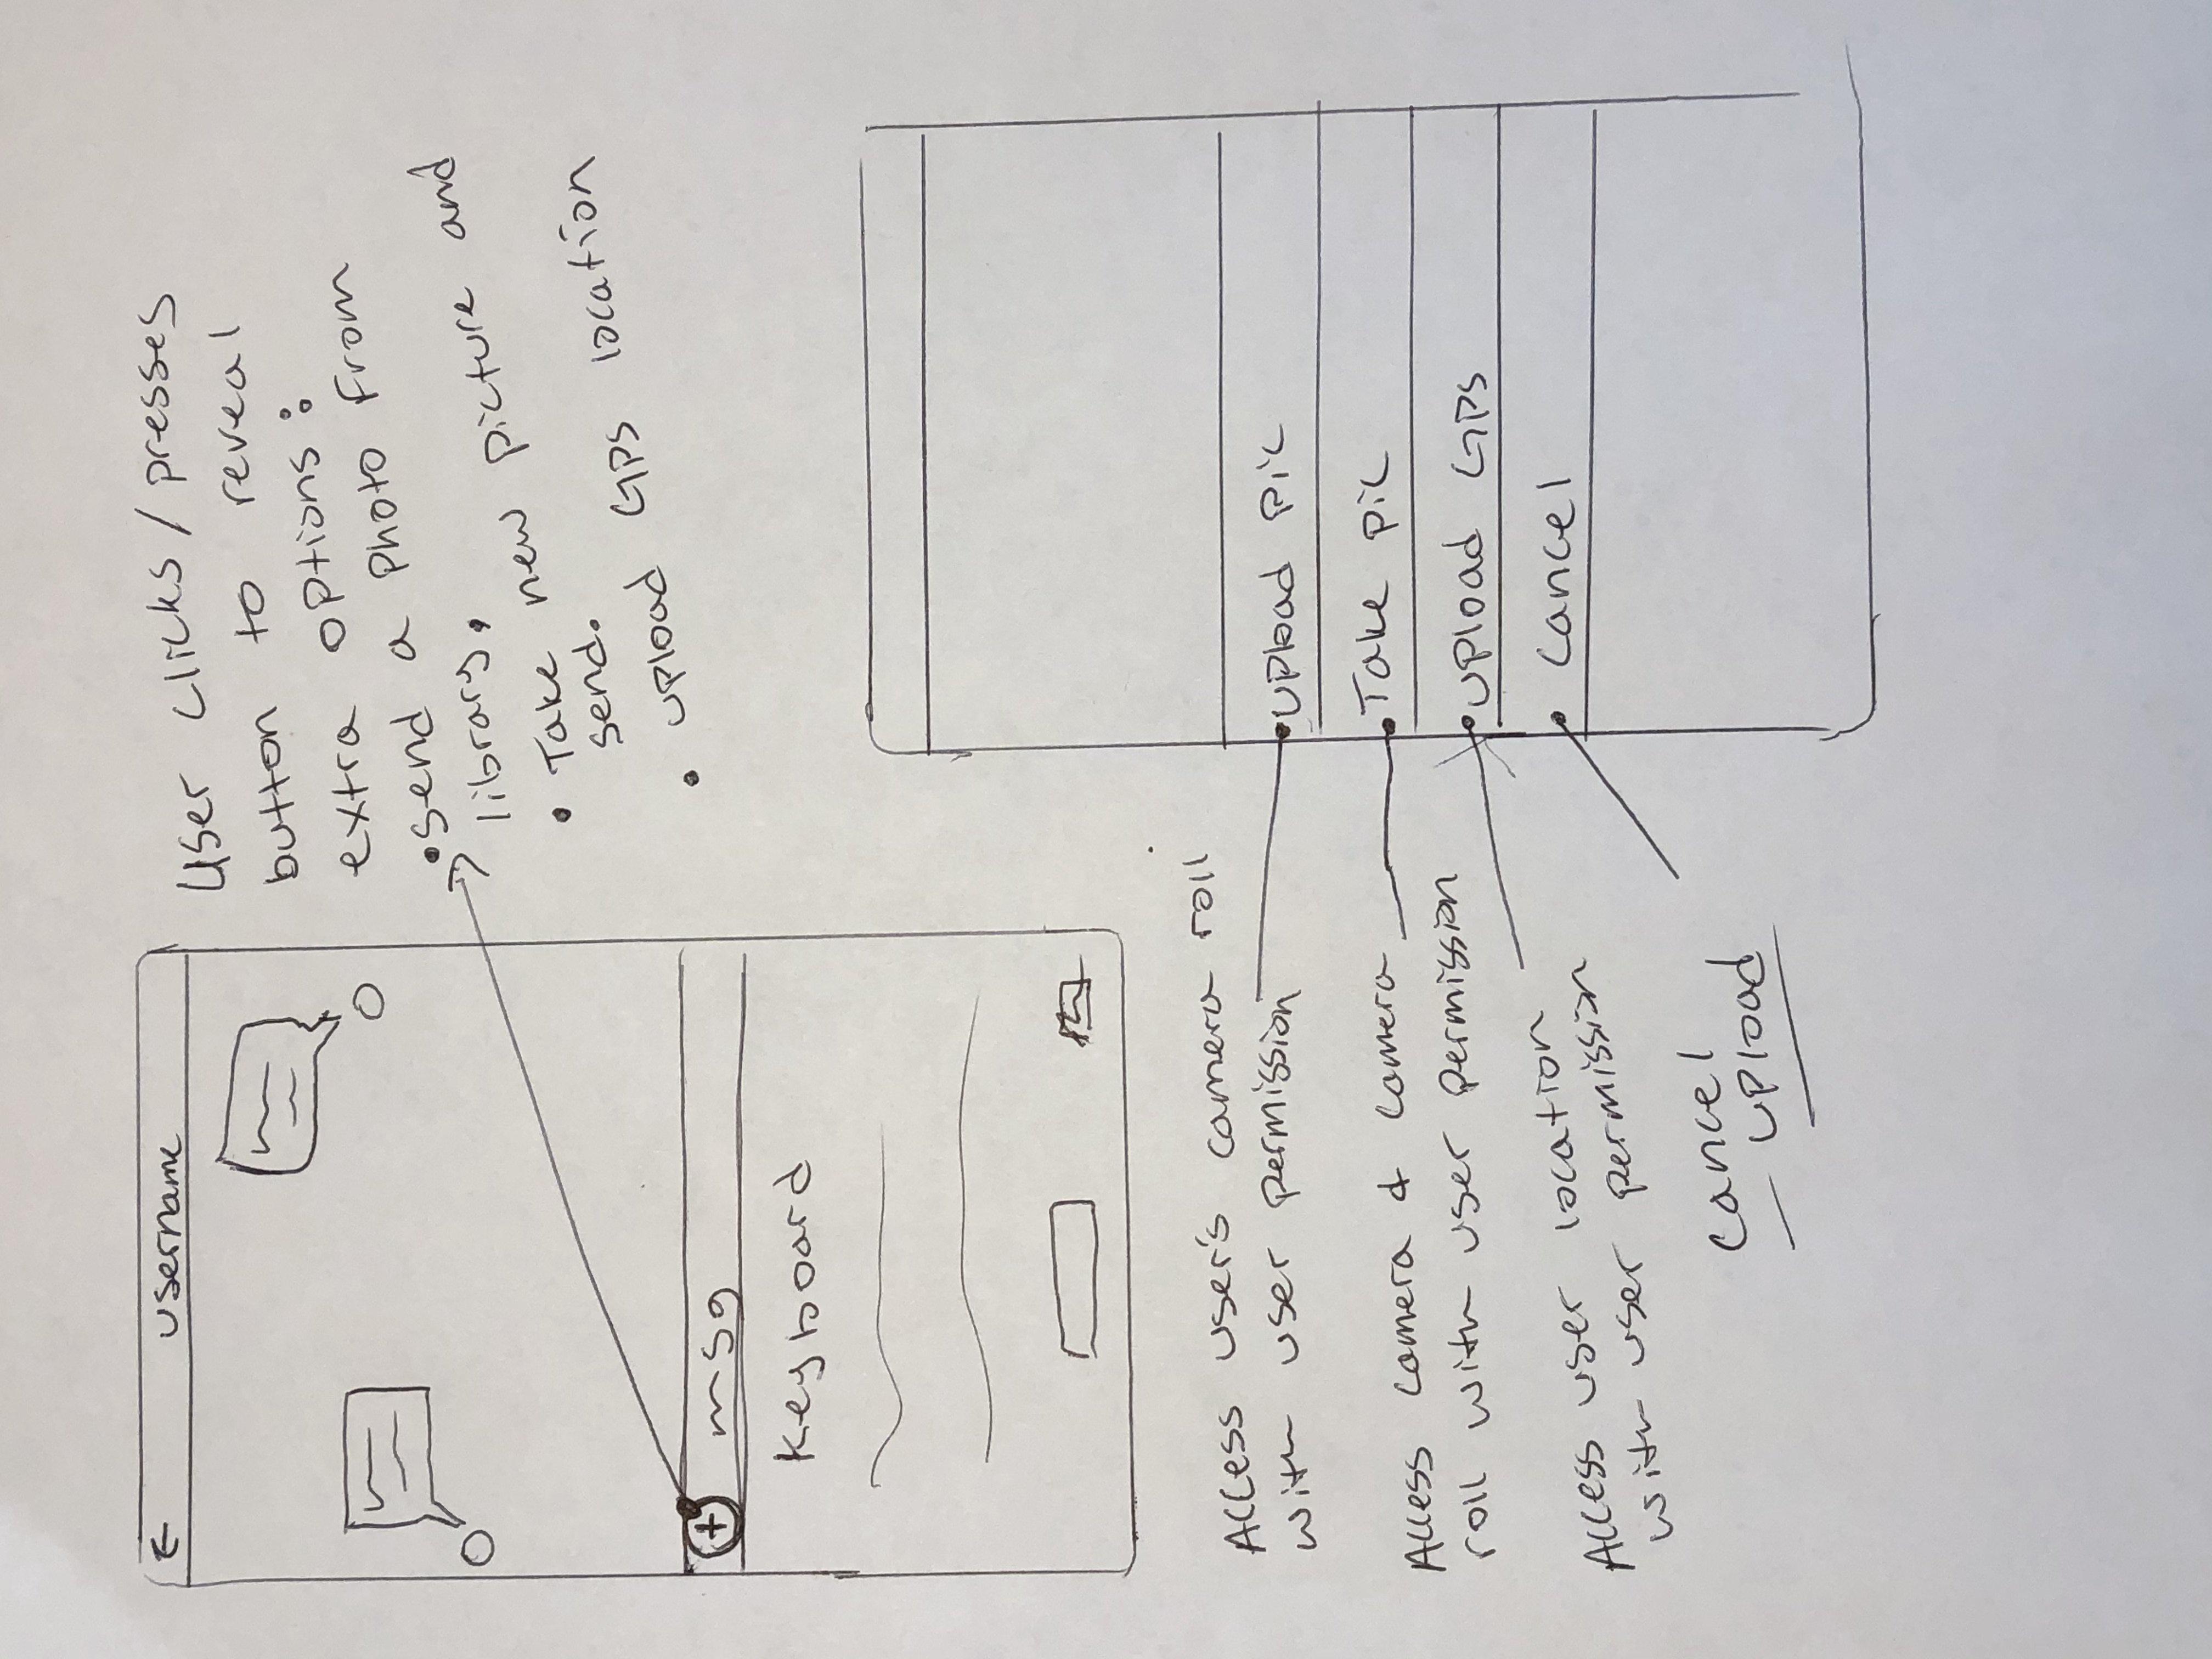 ← username
User clicks / presses
button to reveal
extra options:
• send a photo from
library.
• Take new picture and
send.
• upload GPS location
+ msg
Keyboard
Access user's camera roll
with user permission
Access camera & camera
roll with user permission
Access user location
with user permission
Cancel
upload
upload pic
Take pic
upload GPS
Cancel